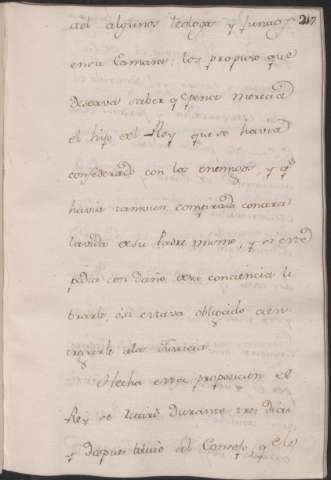 217
del algunos teologos y juntados
en su Camara, los propuso que
deseava saber q̃ pena mereciá
el hijo del Rey que se haviá
confederado con los enemigos, y q.e
havia tamvien conspirado contra
la vida de su Padre mismo, y si este
podia con daño de su conciencia li
brarle, ó si estava obligado a en
tregarle a la Justicia.
Hecha esta proposicion el
Rey se retiró durante tres dias
y despues bolvio al Consejo, q.e le